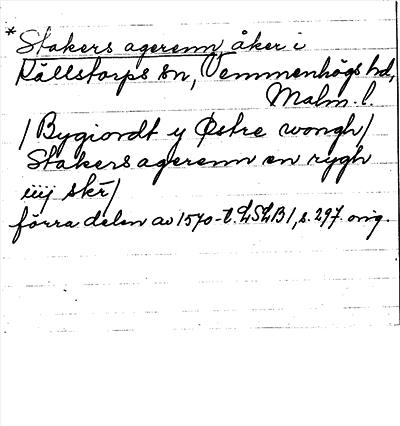 *Stakers agerenn, åker i
Källstorps sn, Vemmenhögs hd,
Malm. l.
/Bygiordt y Østre wongh/
Stakers agerenn en rygh
iiij skr/
förra delen av 1570-t. LSLB1, s. 297. orig.